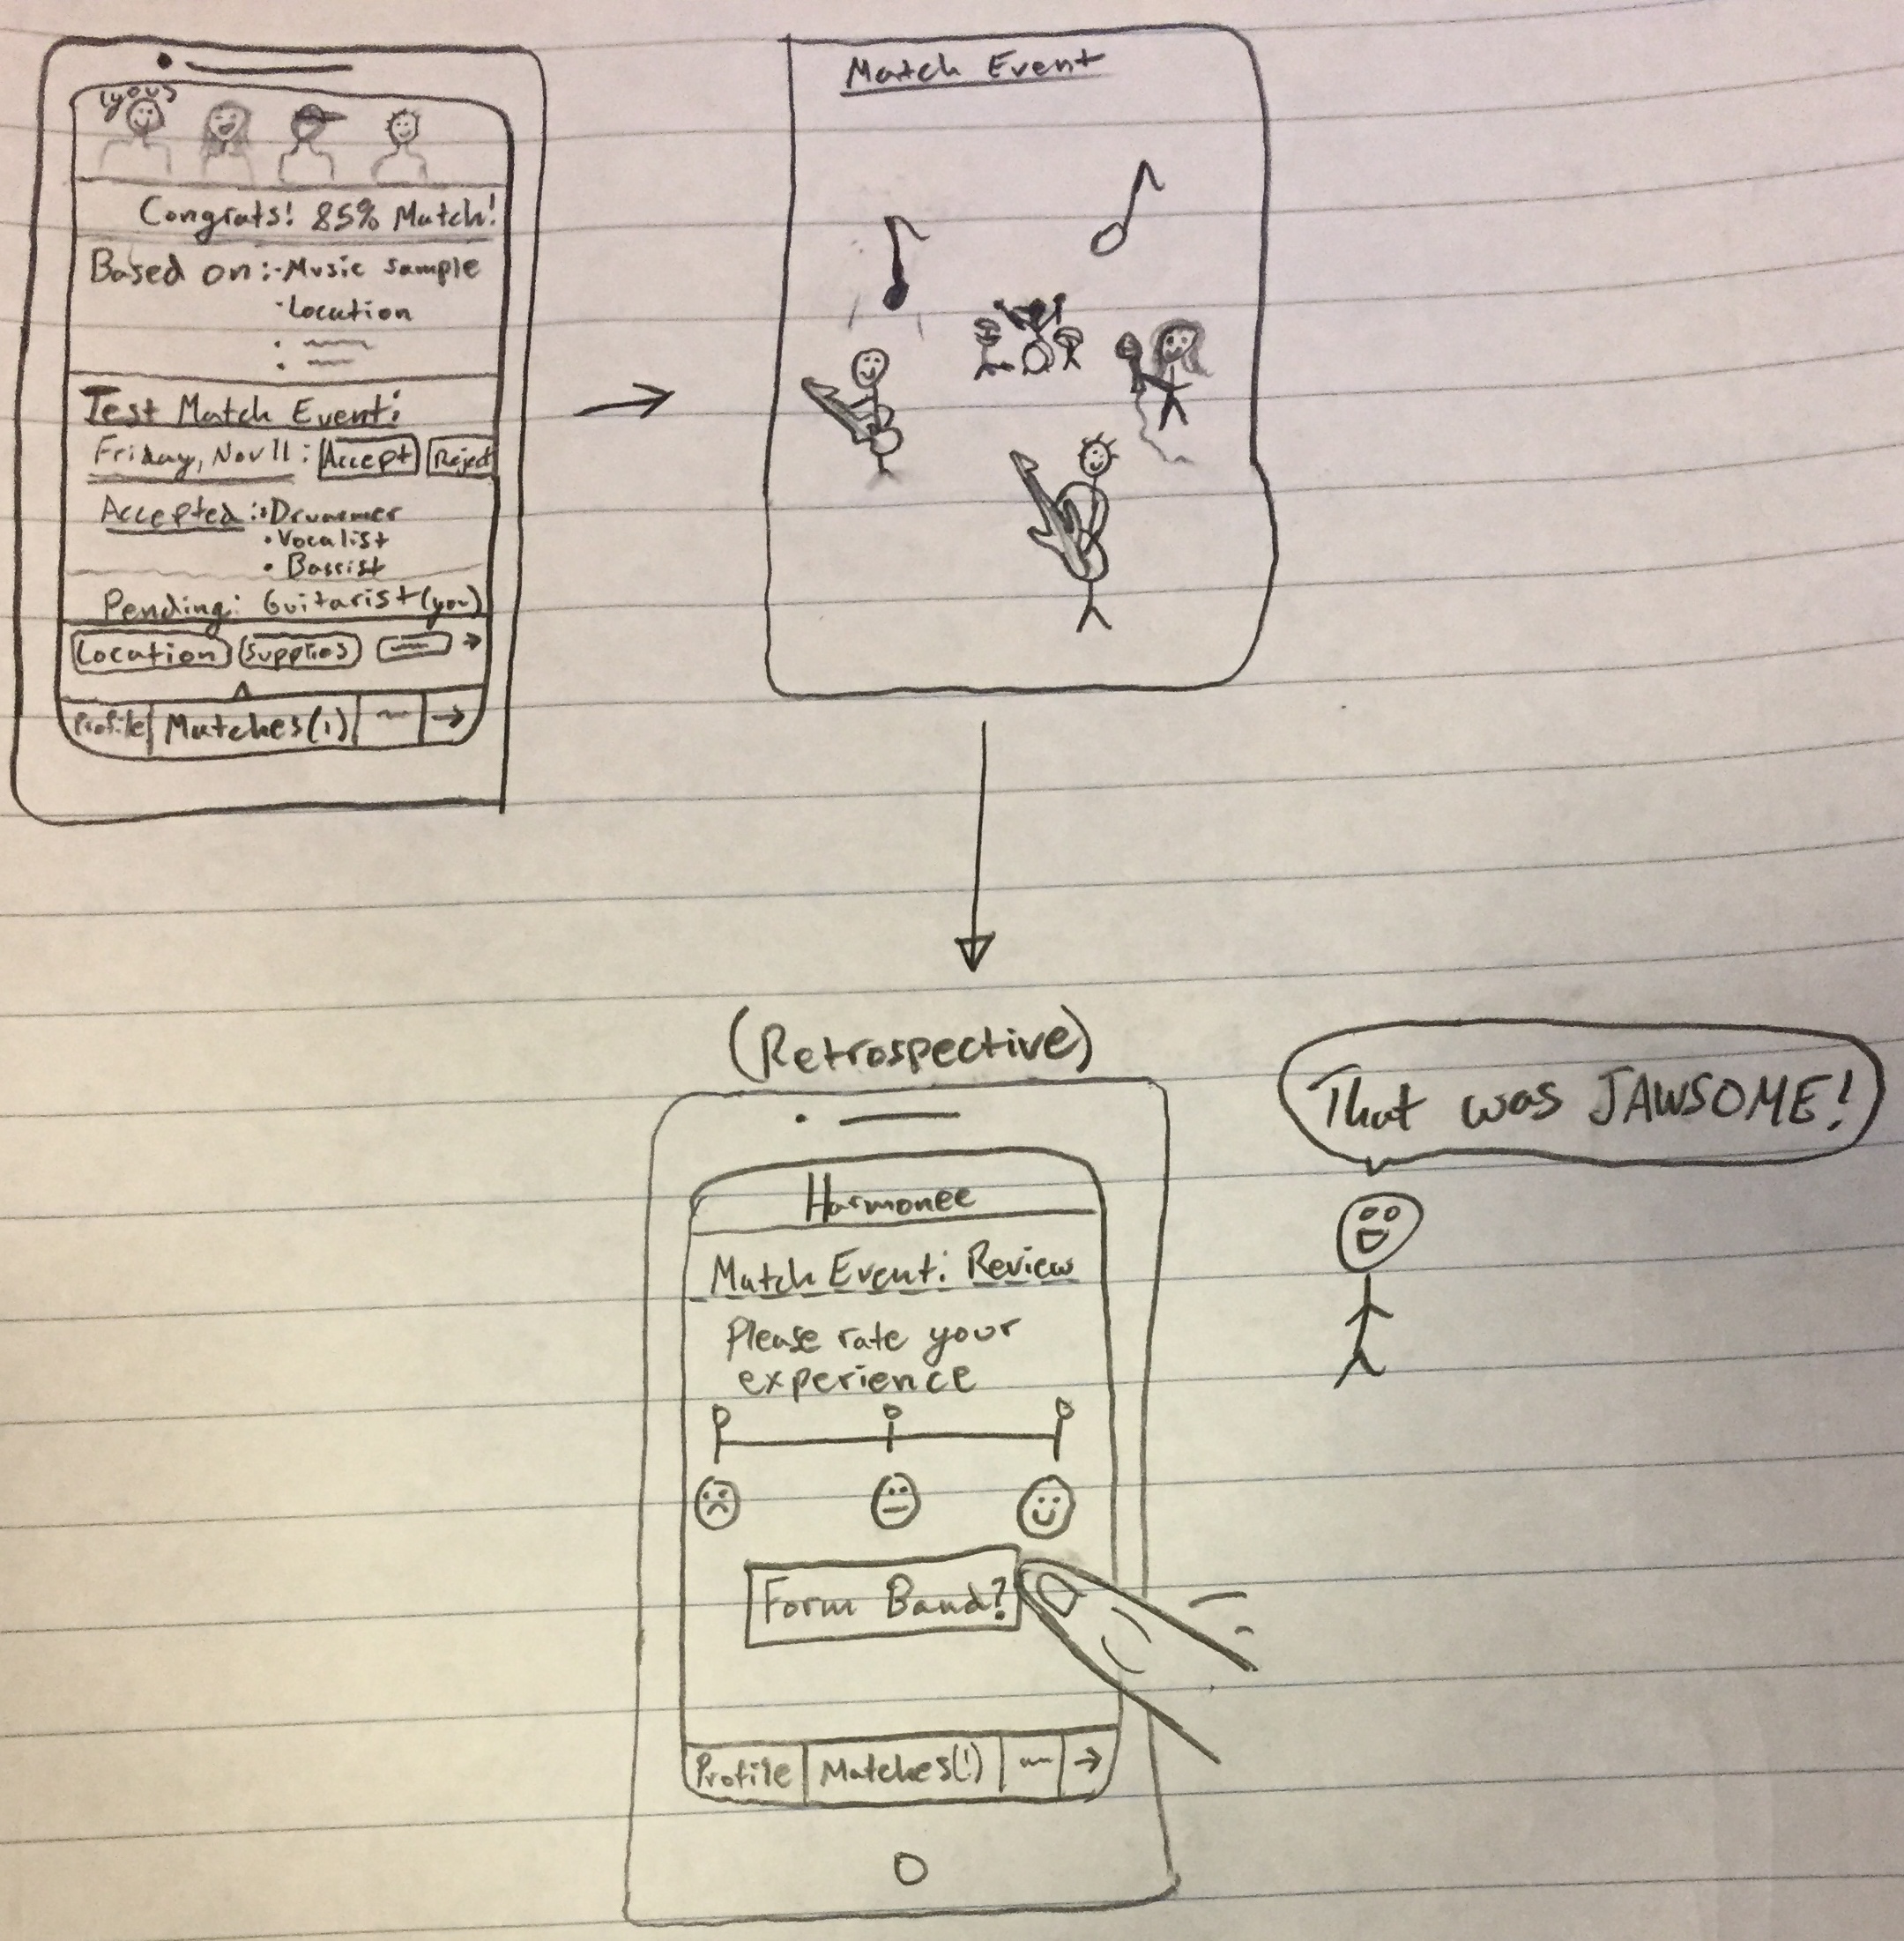 (you)
Congrats! 85% Match!
Based on: · Music sample
· Location
Test Match Event:
Friday, Nov 11: Accept Reject
Accepted: · Drummer
· Vocalist
· Bassist
Pending: Guitarist (you)
Location Supplies →
Profile Matches(1) →
Match Event
(Retrospective)
That was JAWSOME!
Harmonee
Match Event: Review
Please rate your
experience
Form Band?
Profile Matches(!) →